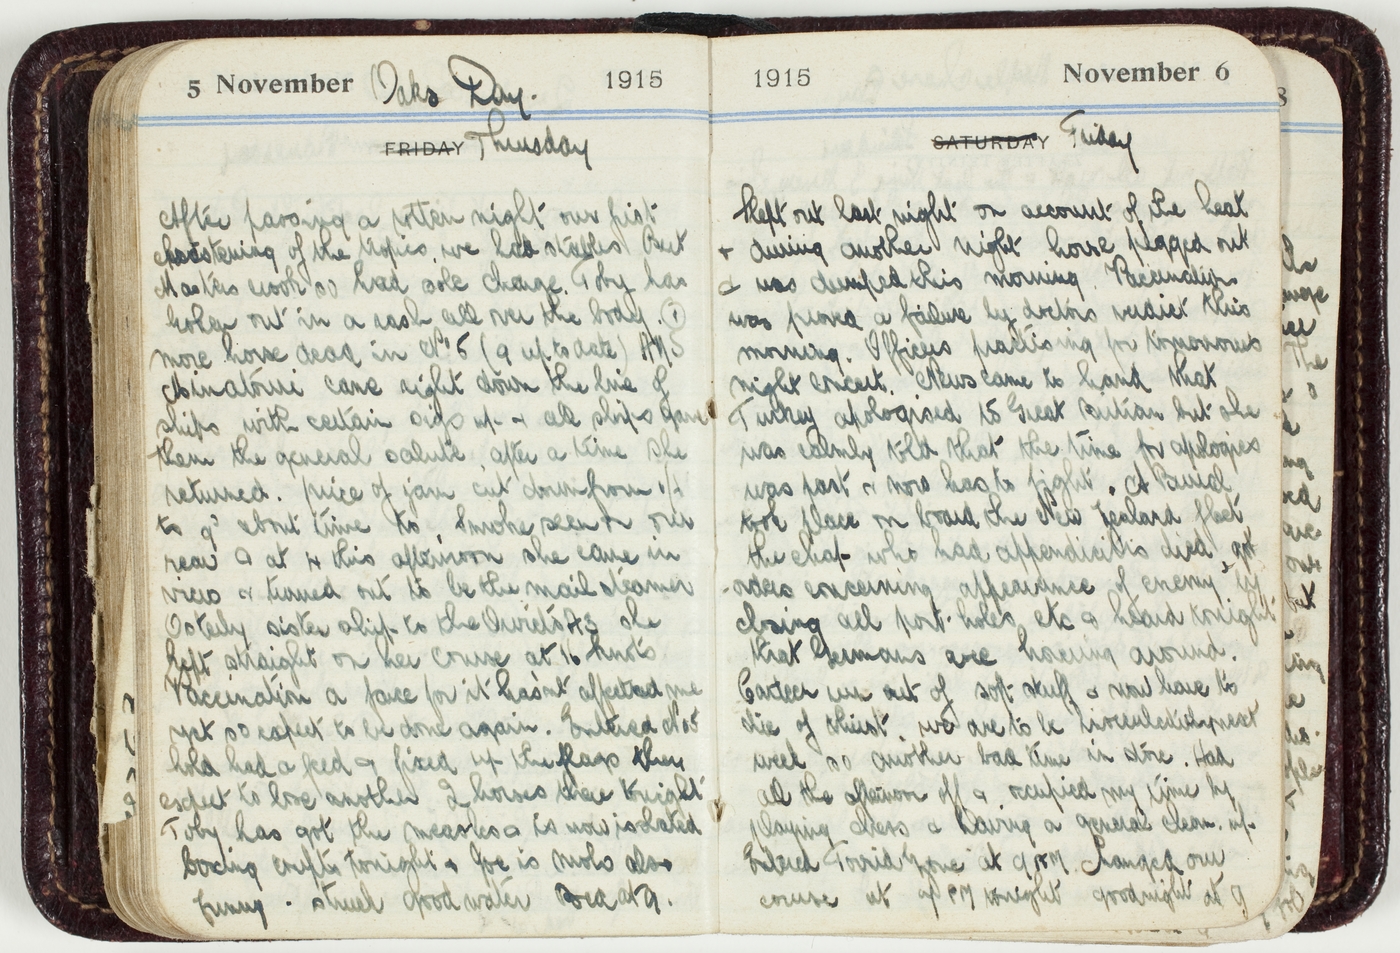 5 November Oaks Day. 1915
FRIDAY Thursday
After passing a rotten night our first
chastening of the tropics, we had stables. Burt
Masters crook so had sole charge. Toby has
broken out in a rash all over the body. (1)
more horse dead in No 5 (9 up to date) HMS
Minatour came right down the line of
ships with certain sigs up & all ships gave
them the general salute, after a time she
returned. Price of jam cut down from 1/1
to 9d about time to. Smoke seen on our
rear & at 4 this afternoon she came in
view & turned out to be the mail steamer
Osterly sister ship to the Orvieto A3 she
left straight on her course at 16 knots
Vaccination a farce for it hasn't affected me
yet so expect to be done again. Entered No 5
hold had a feed & fixed up the flaps they
expect to lose another 2 horses there tonight
Toby has got the measles & is now isolated
boxing contests tonight & Joe is Moho also
funny. struck good water Bed at 9.
1915 November 6
SATURDAY Friday
Slept out last night on account of the heat
& during another night horse pegged out
& was dumped this morning. Vaccination
was proved a failure by doctors verdict this
morning. Officers practising for tomorrows
night concert. News came to hand that
Turkey apologised to Great Britian but she
was calmly told that the time for apologies
was past & now has to fight. A Burial
took place on board the New Zealand fleet
the chap who had appendicitis died, got
orders concerning appearance of enemy, by
closing all port-holes, etc & heard tonight
that Germans are hovering around.
Canteen run out of soft stuff & now have to
die of thirst, we are to be innoculated next
week so another bad time in store. Had
all the afternoon off & occupied my time by
playing chess & having a general clean-up.
Entered Torrid Zone at 9 PM. Changed our
course at PM tonight goodnight at 9